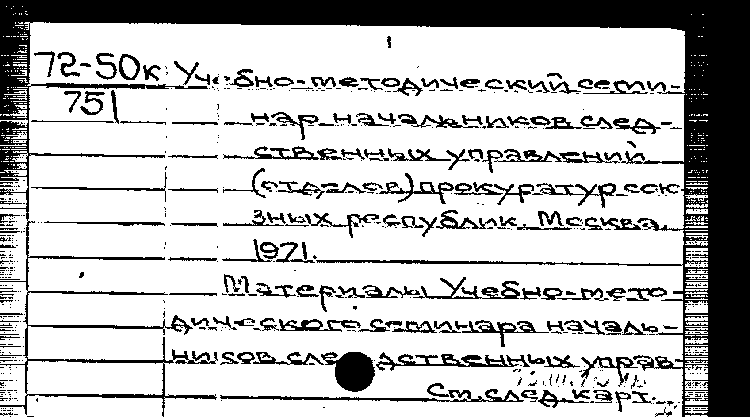 1
72-50к Учебно-методический семи-
751
нар начальников след-
ственных управлений
(отделов) прокуратур сою
зных республик. Москва.
1971.
Материалы Учебно-мето-
дического семинара началь-
ников следственных управ-
См. след. карт.